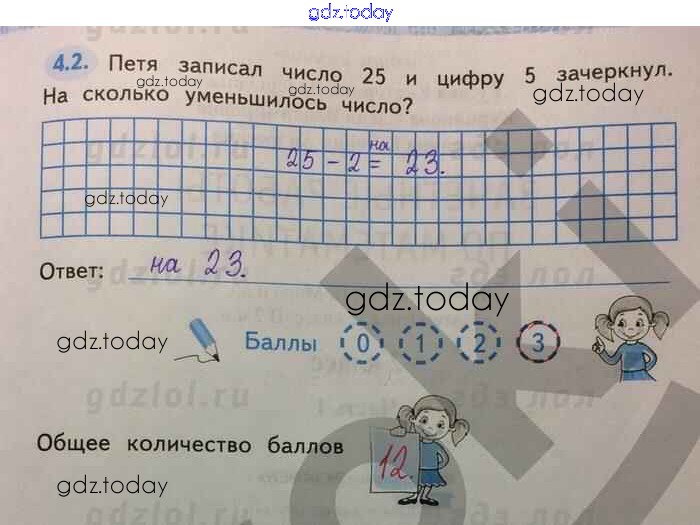 gdz.today
4.2. Петя записал число 25 и цифру 5 зачеркнул.
gdz.today gdz.today gdz.today
На сколько уменьшилось число?
на
25 - 2 = 23.
gdz.today
Ответ: на 23.
gdz.today
gdz.today Баллы 0 1 2 3
gdzlol.ru
Общее количество баллов 12.
gdz.today gdz.today